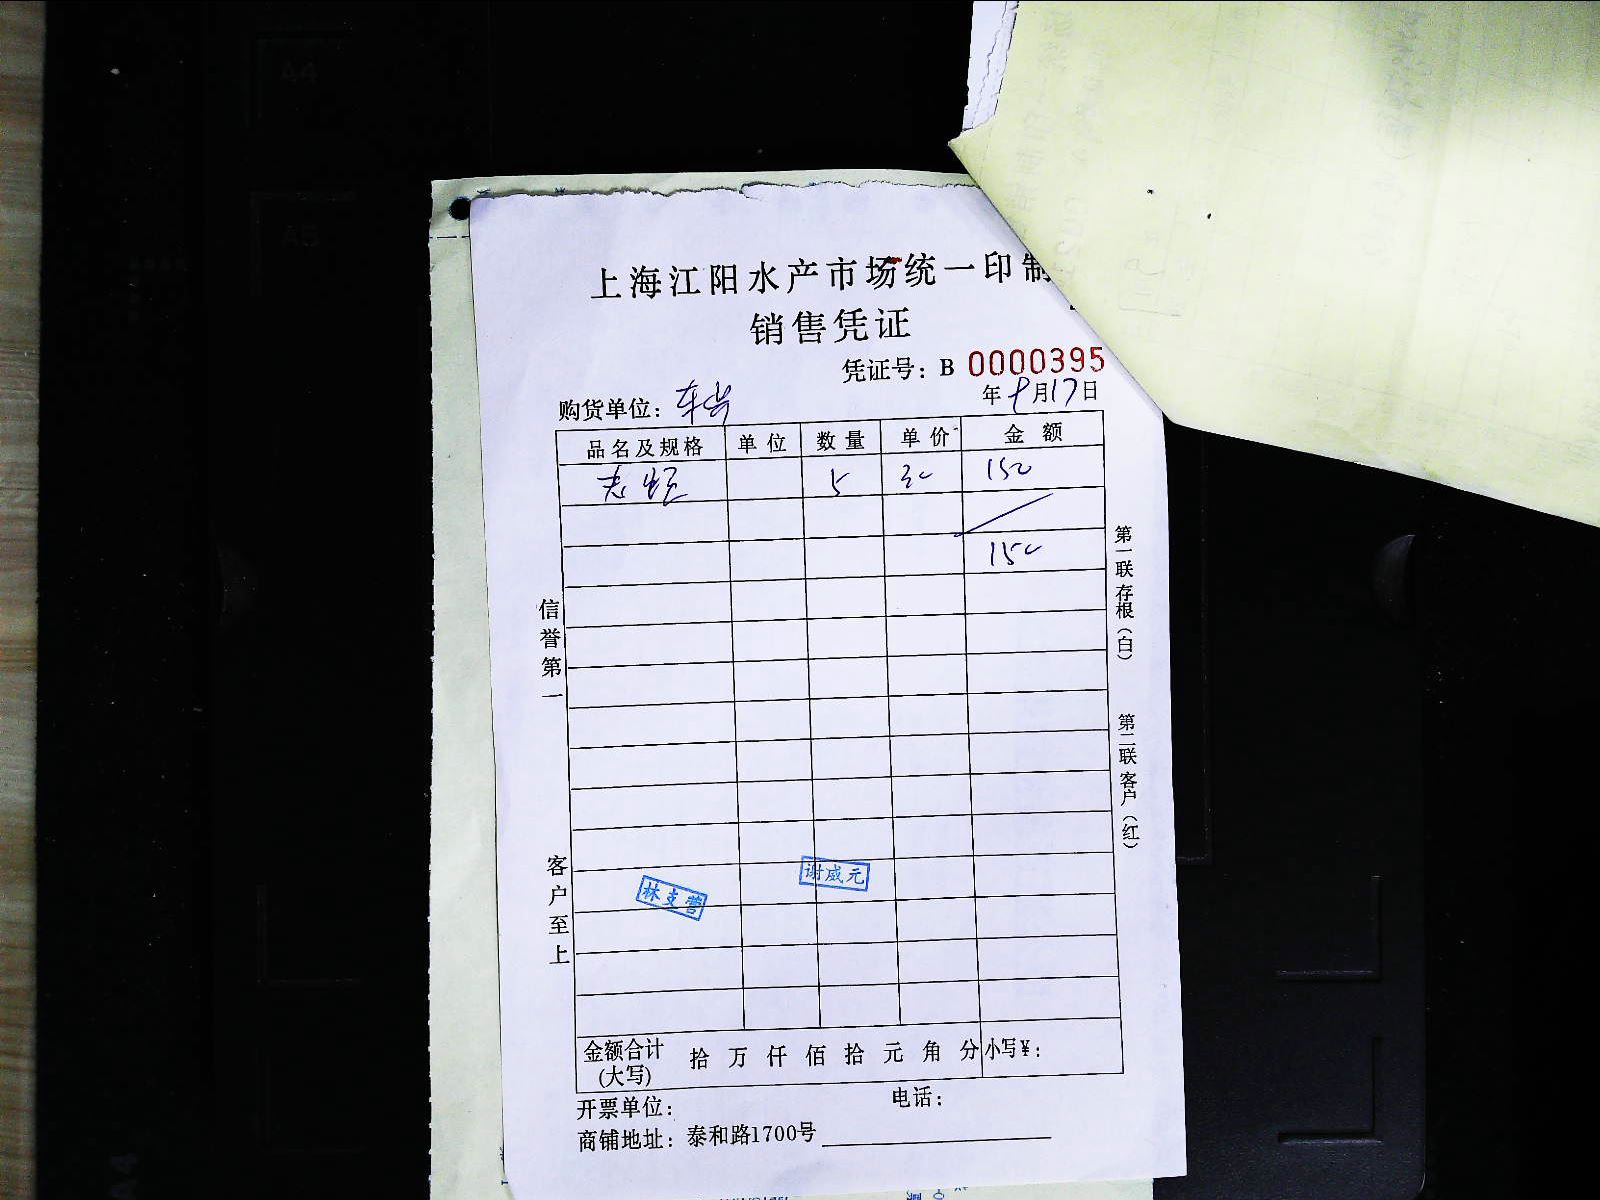 上海江阳水产市场统一印制
销售凭证
凭证号：B 0000395
购货单位：
年9月17日
品名及规格 单位 数量 单价 金额
5 30 150
150
信誉第一
客户至上
第一联存根（白）
第二联客户（红）
林支营
谢威元
金额合计(大写) 拾 万 仟 佰 拾 元 角 分 小写¥：
开票单位： 电话：
商铺地址：泰和路1700号
A4
A5
A4